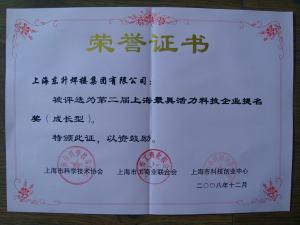 荣誉证书
上海东升焊接集团有限公司:
被评选为第二届上海最具活力科技企业提名
奖(成长型)。
特颁此证,以资鼓励。
上海市科学技术协会 上海市工商业联合会 上海市科技创业中心
二〇〇八年十二月